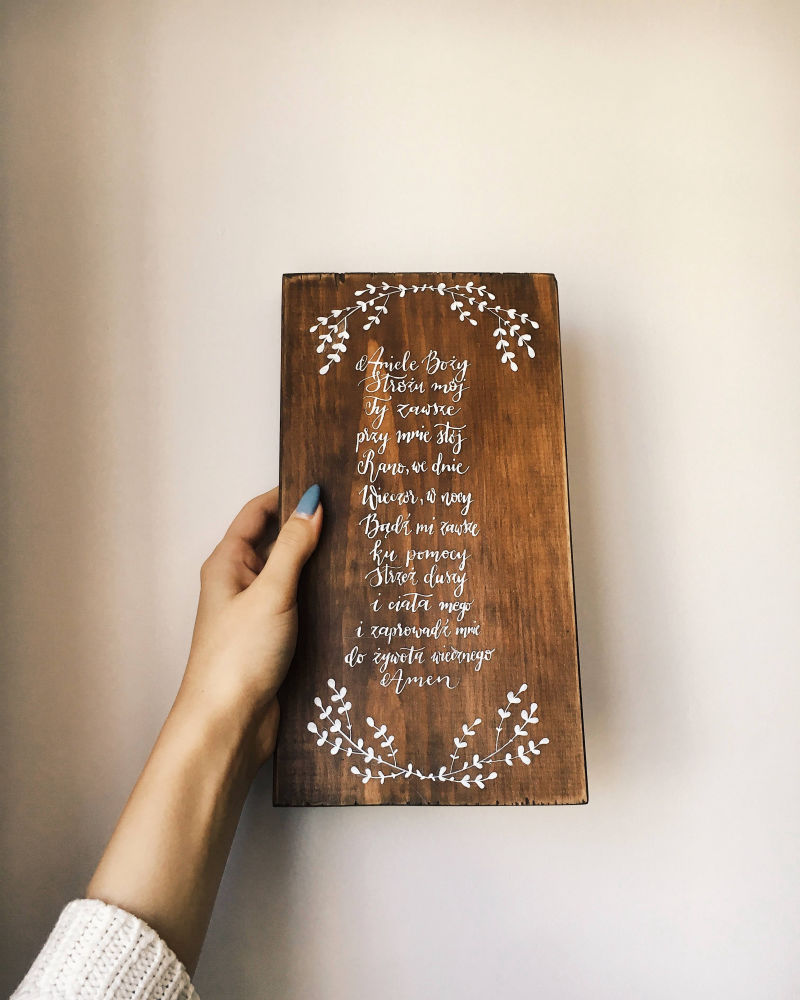 Aniele Boży
Stróżu mój
Ty zawsze
przy mnie stój
Rano, we dnie
Wieczór, w nocy
Bądź mi zawsze
ku pomocy
Strzeż duszy
i ciała mego
i zaprowadź mnie
do żywota wiecznego
Amen